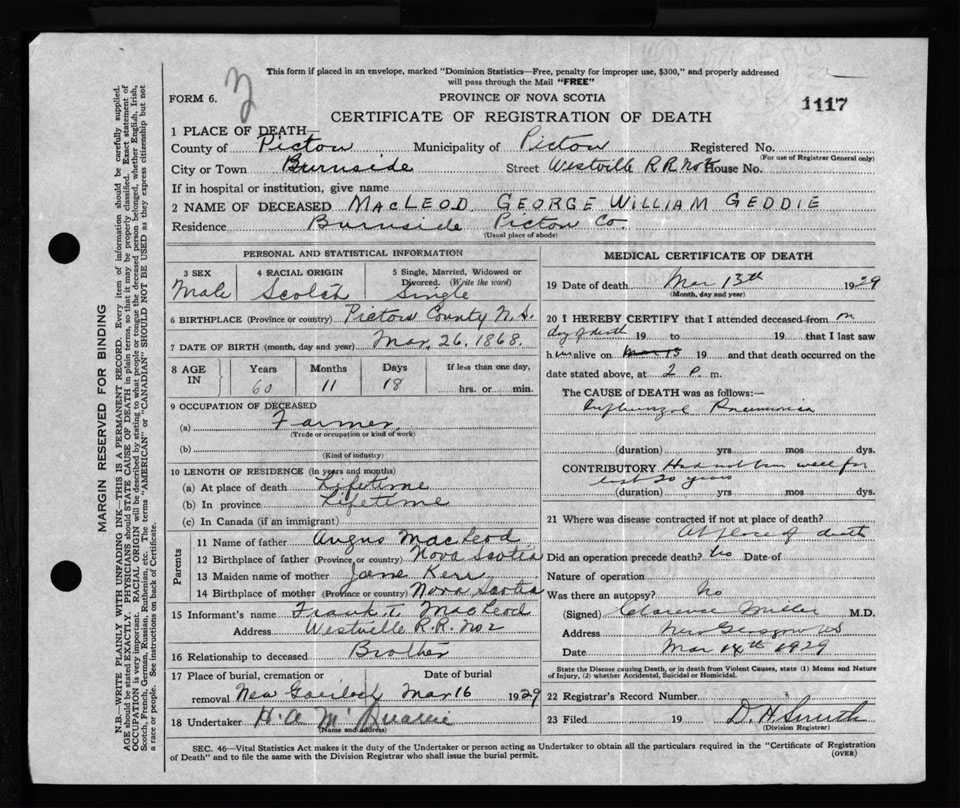 This form if placed in an envelope, marked "Dominion Statistics—Free, penalty for improper use, $300," and properly addressed
will pass through the Mail "FREE"
FORM 6.
PROVINCE OF NOVA SCOTIA
1117
CERTIFICATE OF REGISTRATION OF DEATH
1 PLACE OF DEATH—
County of Pictou Municipality of Pictou Registered No.
(For use of Registrar General only)
City or Town Burnside Street Westville R.R. No 2 House No.
If in hospital or institution, give name
2 NAME OF DECEASED MACLEOD GEORGE WILLIAM GEDDIE
Residence Burnside Pictou Co.
(Usual place of abode)
PERSONAL AND STATISTICAL INFORMATION
3 SEX 4 RACIAL ORIGIN 5 Single, Married, Widowed or
Divorced. (Write the word)
Male Scotch Single
6 BIRTHPLACE (Province or country) Pictou County N.S.
7 DATE OF BIRTH (month, day and year) Mar. 26. 1868.
8 AGE IN Years Months Days If less than one day,
60 11 18 hrs. or min.
9 OCCUPATION OF DECEASED
(a) Farmer
(Trade or occupation or kind of work)
(b)
(Kind of industry)
10 LENGTH OF RESIDENCE (in years and months)
(a) At place of death Lifetime
(b) In province Lifetime
(c) In Canada (if an immigrant)
Parents
11 Name of father Angus MacLeod
12 Birthplace of father (Province or country) Nova Scotia
13 Maiden name of mother Jane Kerr
14 Birthplace of mother (Province or country) Nova Scotia
15 Informant's name Frank T. MacLeod
Address Westville R.R. No 2
16 Relationship to deceased Brother
17 Place of burial, cremation or Date of burial
removal New Gairloch Mar 16 1929
18 Undertaker H. A
(Name and address)
MEDICAL CERTIFICATE OF DEATH
19 Date of death Mar 13th 1929
(Month, day and year)
20 I HEREBY CERTIFY that I attended deceased from on
day of death 19 to 19 that I last saw
him alive on Mar 13 19 and that death occurred on the
date stated above, at 2 P. m.
The CAUSE of DEATH was as follows:
Influenzal Pneumonia
(duration) yrs mos dys.
CONTRIBUTORY Had not been well for
last 20 years
(duration) yrs mos dys.
21 Where was disease contracted if not at place of death?
At place of death
Did an operation precede death? No Date of
Nature of operation
Was there an autopsy? No
(Signed) Clarence Miller M.D.
Address New Glasgow NS
Date Mar 14th 1929
State the Disease causing Death, or in death from Violent Causes, state (1) Means and Nature
of Injury, (2) whether Accidental, Suicidal or Homicidal.
22 Registrar's Record Number
23 Filed 19 D. H. Smith
(Division Registrar)
SEC. 46—Vital Statistics Act makes it the duty of the Undertaker or person acting as Undertaker to obtain all the particulars required in the "Certificate of Registration
of Death" and to file the same with the Division Registrar who shall issue the burial permit.
(OVER)
MARGIN RESERVED FOR BINDING
N.B.—WRITE PLAINLY WITH UNFADING INK—THIS IS A PERMANENT RECORD. Every item of information should be carefully supplied.
AGE should be stated EXACTLY. PHYSICIANS should STATE CAUSE OF DEATH in plain terms, so that it may be properly classified. Exact statement of
OCCUPATION is very important. RACIAL ORIGIN will be described by stating to what people or tongue the deceased person belonged, whether English, Irish,
Scotch, French, German, Russian, Ruthenian, etc. The terms "AMERICAN" or "CANADIAN" SHOULD NOT BE USED as they express citizenship but not
a race or people. See instructions on back of Certificate.